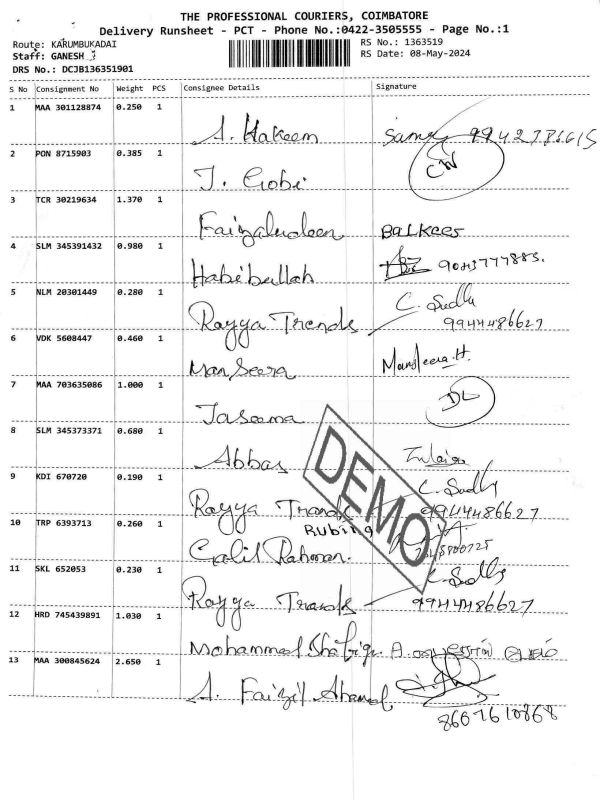 THE PROFESSIONAL COURIERS, COIMBATORE
Delivery Runsheet - PCT - Phone No.:0422-3505555 - Page No.:1
Route: KARUMBUKADAI RS No.: 1363519
Staff: GANESH RS Date: 08-May-2024
DRS No.: DCJB136351901
S No Consignment No Weight PCS Consignee Details Signature
1 MAA 301128874 0.250 1
A. Hakeem
2 PON 8715903 0.385 1
CW
J. Gobi
3 TCR 30219634 1.370 1
Faizaludeen Balkees
4 SLM 345391432 0.980 1
Habibullah
5 NLM 20301449 0.280 1
Rayya Trends C. Sudha
9944486627
6 VDK 5608447 0.460 1
Manseera Manseera.H.
7 MAA 703635086 1.000 1
DL
Jaseema
8 SLM 345373371 0.680 1
Abbas
DEMO
9 KDI 670720 0.190 1
Rayya Trends C. Sudha
9944486627
10 TRP 6393713 0.260 1
Rubina
Galil Rahman.
11 SKL 652053 0.230 1
Rayya Trends C. Sudha
9944486627
12 HRD 745439891 1.030 1
Mohammed Shafiq. A.
13 MAA 300845624 2.650 1
A. Faizil Ahamed
8667610868